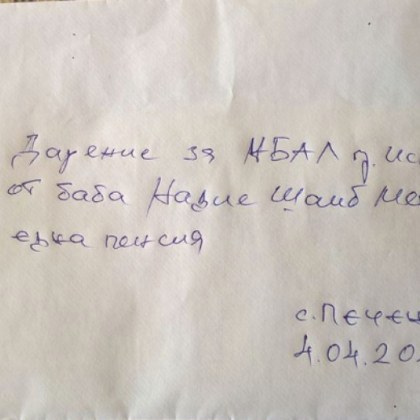 Дарение за МБАЛ г. Ис
от баба Надие Шаиб Ме
една пенсия
с. Печен
4.04.20